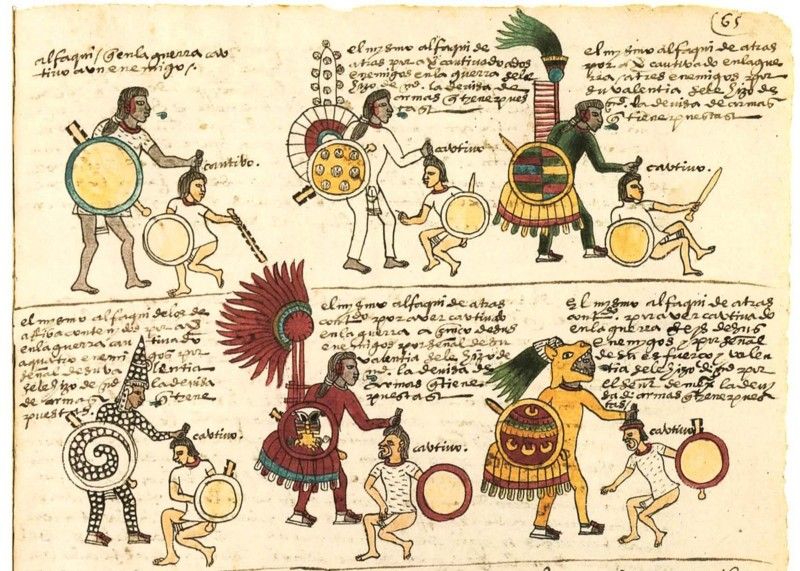 65
alfaqui / q̃ en la guerra cau
tivo a un enemigo /.
cautivo.
el mysmo alfaqui de
atras por a ver cautivado dos
enemigos en la guerra se le
hizo de md. la devisa de
armas q̃ tiene pues
tas /
cautivo
el mysmo alfaqui de atras
por a ver cautivado en la gue
rra / a tres enemigos por
su valentia se le hizo de
md. la devisa de armas
q̃ tiene puestas
cautivo.
el mismo alfaqui de los de
en la guerra cau tivado
a quatro enemi gos por
señal de su va lentia
se le hizo de md la devisa
de armas q̃ tiene
puestas
cautivo.
el mismo alfaqui de atras
por aver cautivado
en la guerra a cinco de sus
enemigos por señal de su
valentia se le hizo de
md. la devisa de
armas q̃ tiene
puestas
cautivo.
El mismo alfaqui de atras
por aver cautivado
en la guerra de sus
enemigos y por señal
de su esfuerço y valen
tia se le hizo md por
el señor de mexico la devi
sa de armas q̃ tiene pues
tas /
cautivo